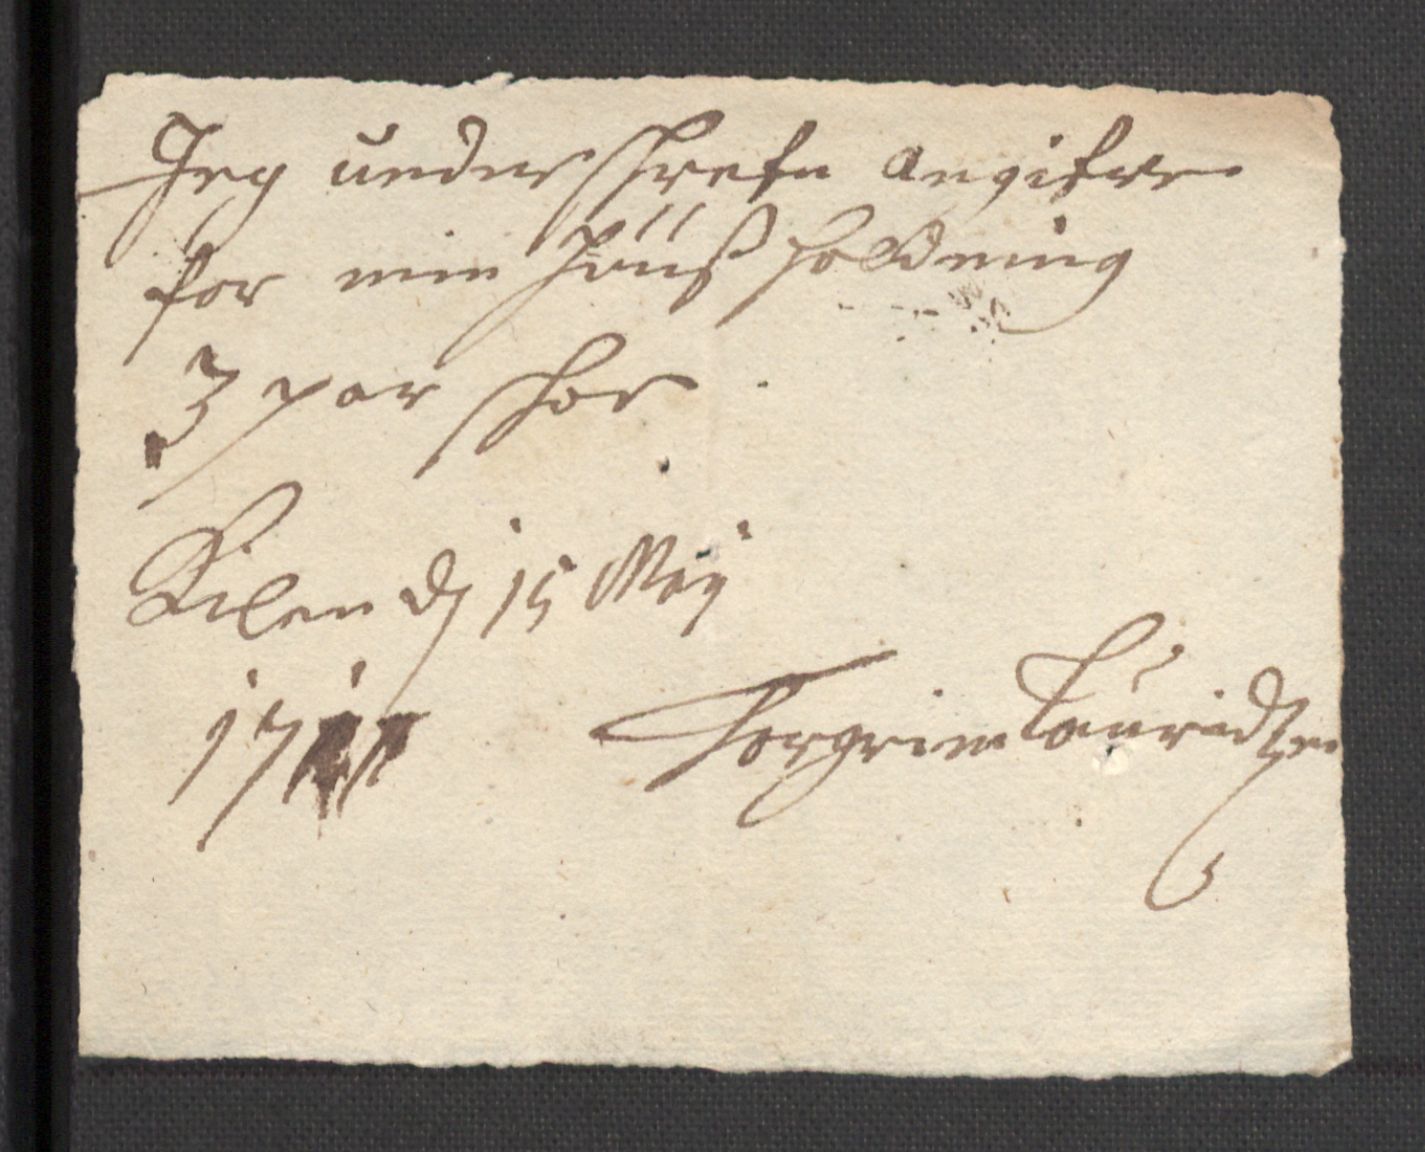 Jeg underskrefn angifver
for min Huußholdning
3 par skoe
Kilen dj 15 Maij
1711
Torgrim Lauridtzen